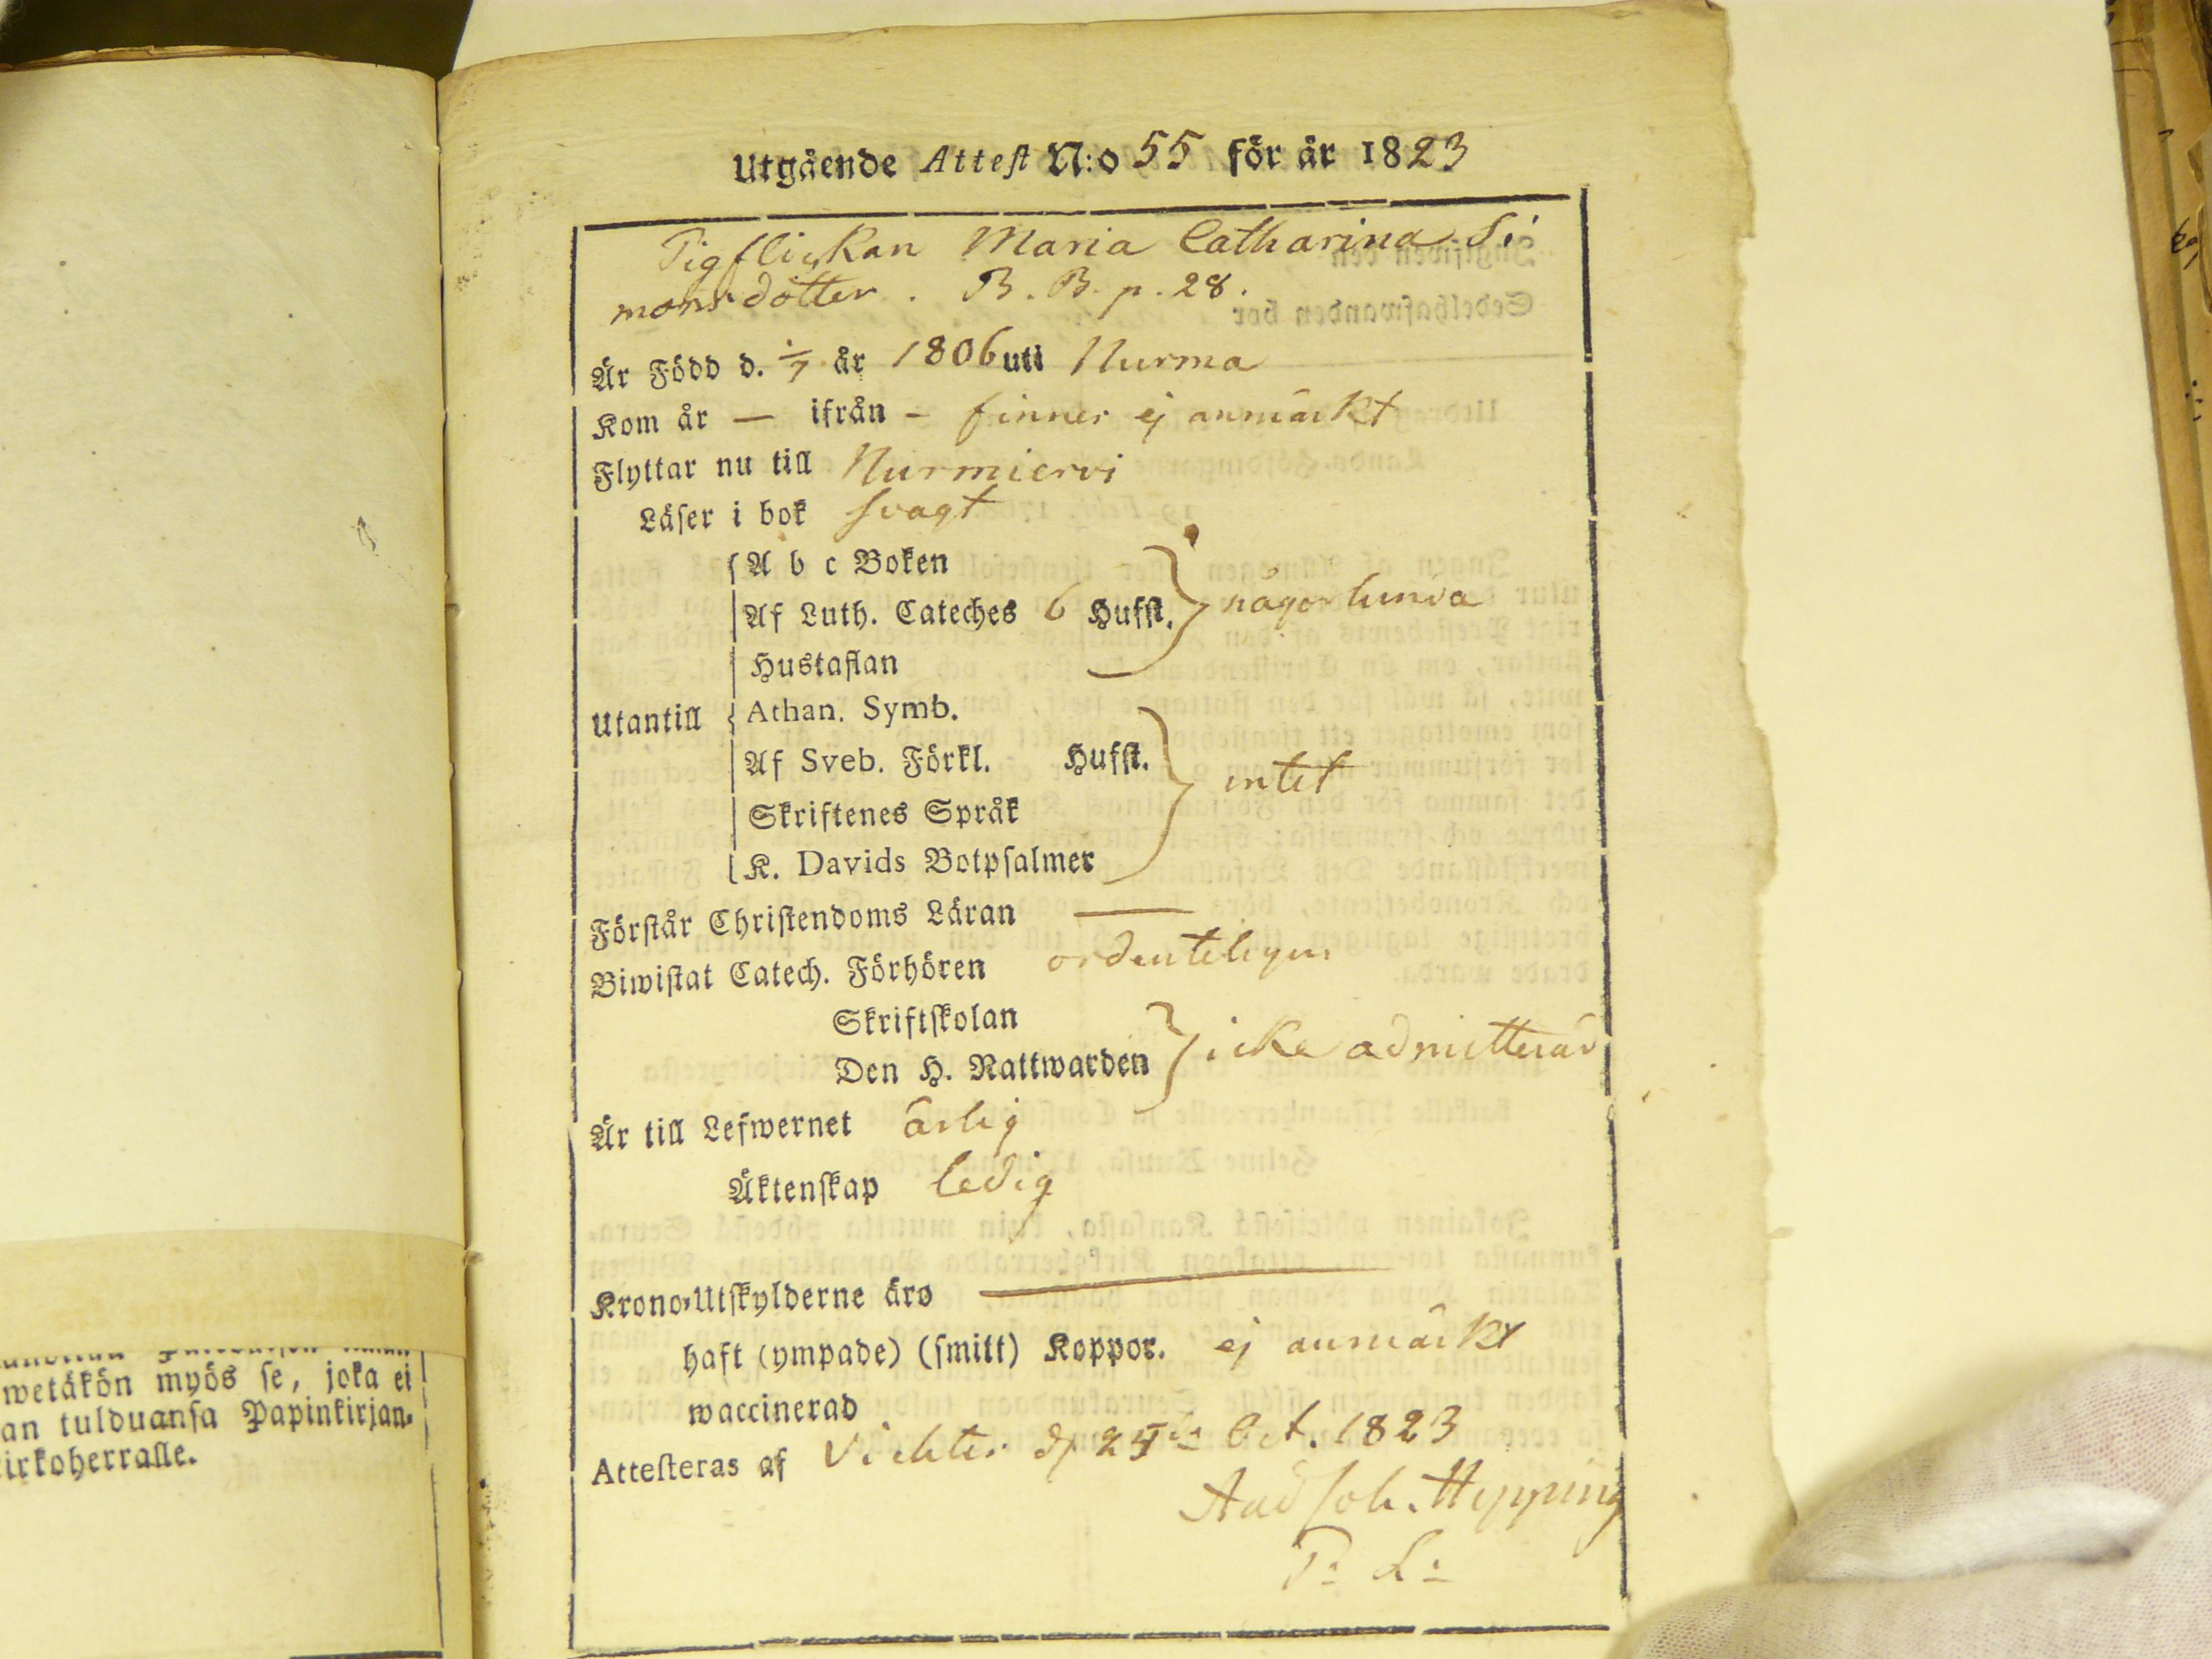 Utgående Attest N:o 55 för år 1823
Pigflickan Maria Catharina Si
monsdotter. B. B. p. 28.
Är Född d. ÷/7 år 1806 uti Nurma
Kom år — ifrån – finner ej anmärkt
Flyttar nu till Nurmiervi
Läser i bok svagt
A b c Boken
Af Luth. Cateches 6 Hufst. någorlunda
Hustaflan
Utantill
Athan. Symb.
Af Sveb. Förkl. Hufst. intet
Skriftenes Språk
K. Davids Botpsalmer
Förstår Christendoms Läran —
Biwistat Catech. Förhören ordenteligen
Skriftskolan
Den H. Nattwarden icke admitterad
Är till Lefwernet ärlig
Äktenskap ledig
Krono-Utskylderne äro —
haft (ympade) (smitt) Koppor. ej anmärkt
waccinerad
Attesteras af Vichtis d. Oct. 1823
And Joh. Hipping
P: L:
wetäkön myös se, joka ei
an tulduansa Papinkirjan-
irkoherralle.